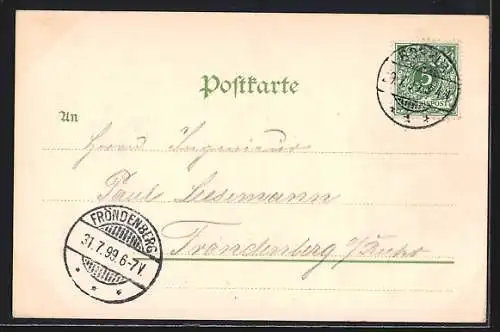 Postkarte
5
REICHSPOST
An
Herrn Ingenieur
Paul Lesemann
Fröndenberg a/Ruhr
FRÖNDENBERG
31.7.99.6-7V.